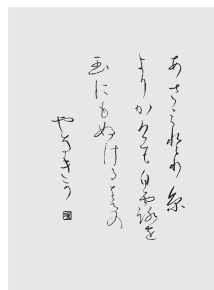 あさみとり 糸
よりかけて 白露を
玉にもぬける春の
やなきか